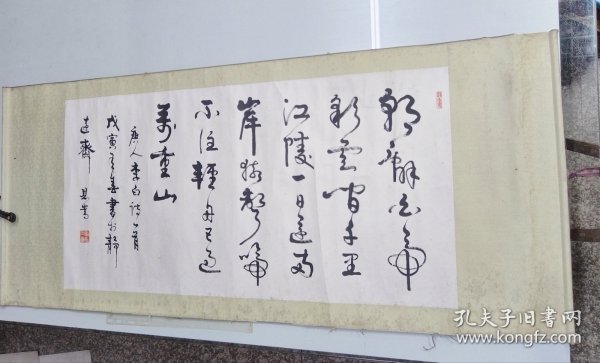 朝辭白帝
彩雲間千里
江陵一日還兩
岸猿聲啼
不住輕舟已過
萬重山
唐人李白詩一首
戊寅春書於靜
遠齋
孔夫子旧书网
www.kongfz.com